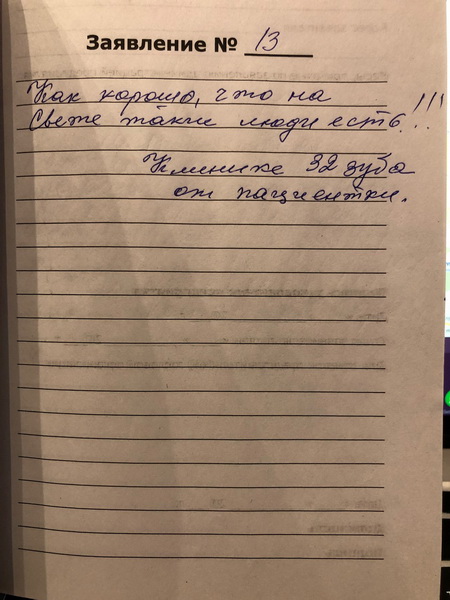 Заявление № 13
Как хорошо, что на
свете такие люди есть!!!
Клинике 32 зуба
от пациентки.